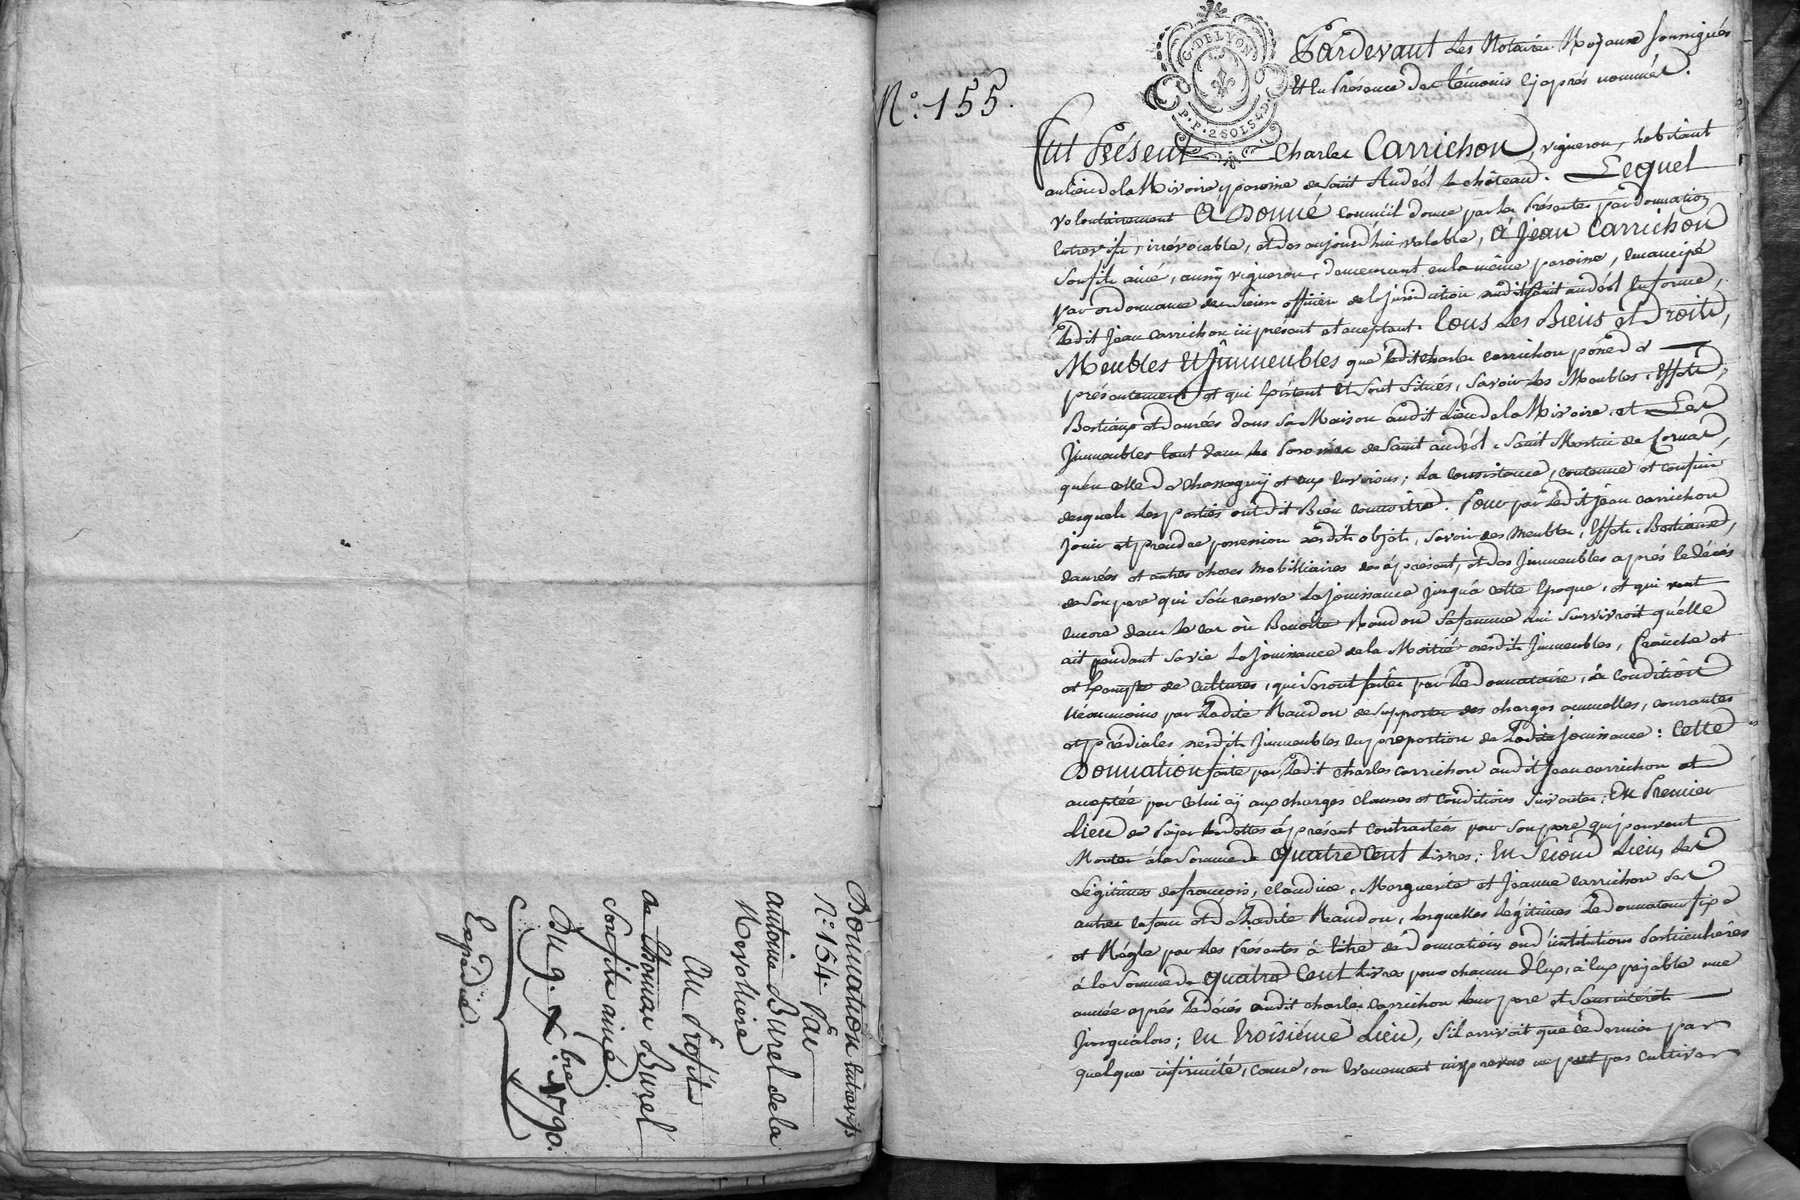 Donnation entrevifs
N.° 154 Par
antoine Burel de la
Rivolliere
Au Profit
de Thomas Burel
Son fils ainé.
Du 9. Xbre 1790.
Expédié.
G. DE LYON
P. P. 2 SOLS 4 D.
N.° 155.
Pardevant Les Notaires Royaux Soussignés
Et En Présence des témoins Cy après nommés.
Fut Présent Charles Carrichon, vigneron, habitant
au lieu de la Rivoire, paroisse de Saint Andéol le château. Lequel
volontairement A Donné comme il donne par les Présentes par donnation
Entrevifs, irrévocable, et des aujourd'hui valable, à Jean Carrichon
Son fils ainé, aussy vigneron, demeurant en la même paroisse, émancipé
par ordonnance des Sieurs officiers de la jurisdiction dudit Saint andéol En forme,
Ledit Jean Carrichon ici présent et acceptant. Tous Les Biens et Droits,
Meubles Et Jmmeubles que Ledit Charles Carrichon possede
présentement et qui Existent Et Sont Situés, Savoir Les Meubles, Effets,
Bestiaux et danrées dans Sa Maison audit Lieu de la Rivoire, et Les
Jmmeubles tant dans les Paroisses de Saint andéol, Saint Martin de Cornas,
qu'en celle de Chassagny et aux Environs; La consistance, contenue et confins
desquels Les parties ont dit Bien connoitre. Pour par Ledit jean Carrichon
jouir et prendre possession desdits objets, Savoir des Meubles, Effets, Bestiaux,
danrées et autres choses mobilliaires des à présent, et des Jmmeubles après le décès
de Son pere qui S'en reserve La jouissance jusqu'à cette Epoque, et qui veut
encore dans le cas où Benoite Randon Sa femme Lui Survivroit qu'elle
ait pendant Sa vie La jouissance de la Moitié desdits Jmmeubles, franche et
et Exempte de cultures, qui Seront faites par Le Donnataire, à condition
Néanmoins par Ladite Randon de Supporter des charges annuelles, courantes
et prédiales desdits Jmmeubles En proportion de Ladite jouissance: Cette
Donnation faite par Ledit Charles Carrichon audit Jean Carrichon et
acceptée par celui cy aux charges clauses et conditions Suivantes; En Premier
Lieu de Payer Les dettes à présent contractées par Son pere qui peuvent
Monter à la Somme de quatre Cent Livres; En Second Lieu, Les
Légitimes de françois, claudine, Marguerite et Jeanne Carrichon Ses
autres enfans et de Ladite Randon, Lesquelles Légitimes Le Donnateur fixe
et Régle par Les Présentes à titre de Donnations ou d'institutions Particulières
à la Somme de quatre Cent Livres pour chacun d'Eux, à Eux payable une
année après Le décès dudit Charles Carrichon Leur pere et Sans intérêt
Jusqu'alors; En troisième Lieu, S'il arrivoit que ce dernier par
quelque infirmité, cause, ou Evenement imprevus ne put pas cultiver